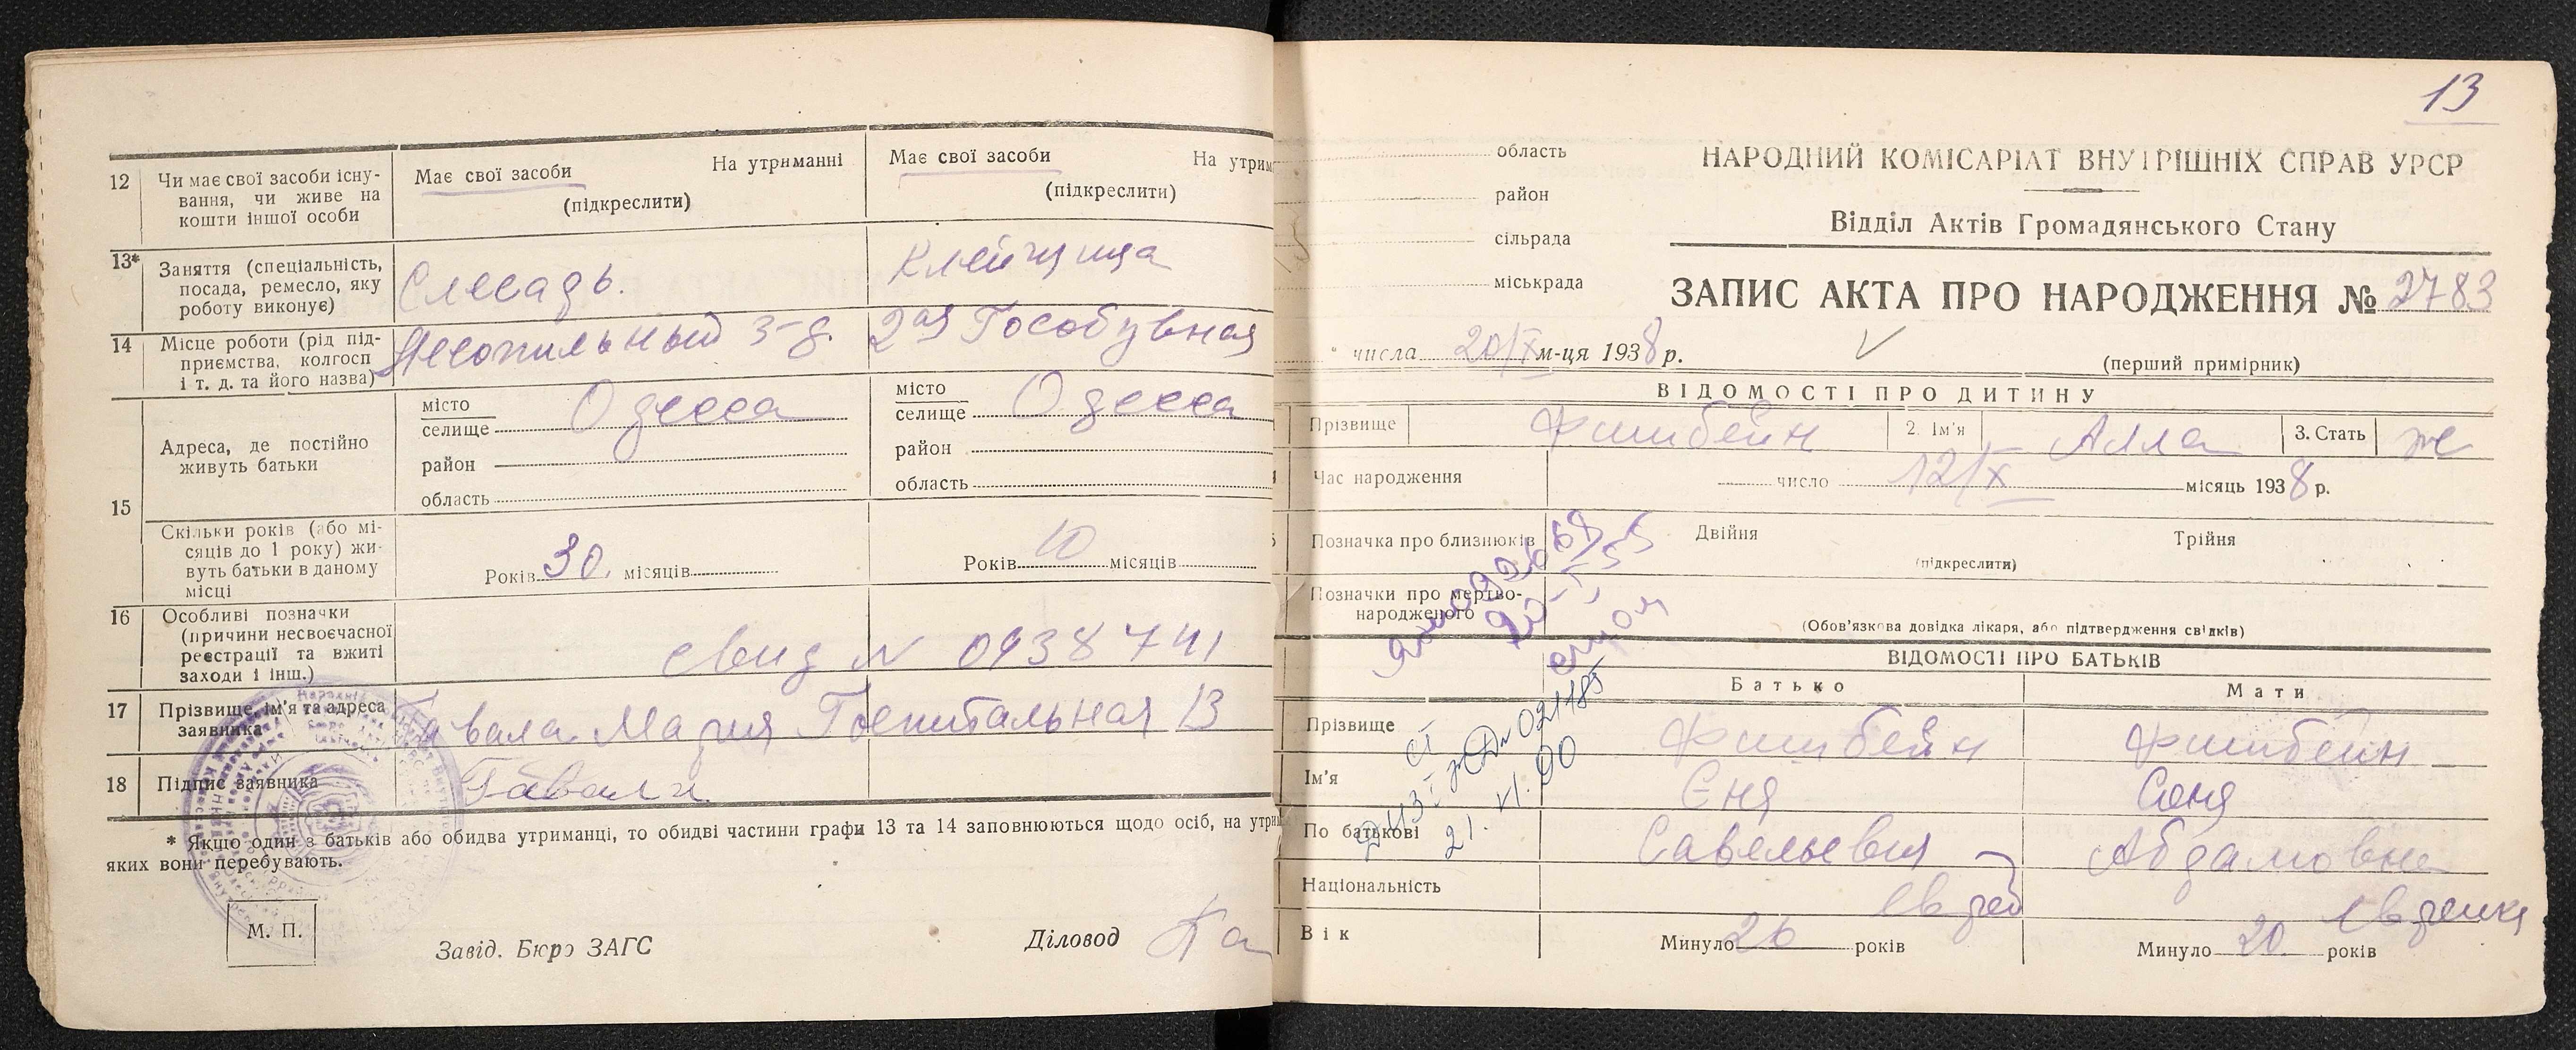 12 Чи має свої засоби існу-
вання, чи живе на
кошти іншої особи
Має свої засоби На утриманні
(підкреслити)
Має свої засоби На утрим
(підкреслити)
13* Заняття (спеціальність,
посада, ремесло, яку
роботу виконує)
Слесарь.
Клейщица
14 Місце роботи (рід під-
приємства, колгосп
і т. д. та його назва)
Лесопильный з-д.
2ая Гособувная
15 Адреса, де постійно
живуть батьки
місто
селище Одесса
район
область
місто
селище Одесса
район
область
Скільки років (або мі-
сяців до 1 року) жи-
вуть батьки в даному
місці
Років 30. місяців
Років 10 місяців
16 Особливі позначки
(причини несвоєчасної
реєстрації та вжиті
заходи і інш.)
свид N 0938741
17 Прізвище, ім'я та адреса
заявника
Мария Госпитальная 13
18 Підпис заявника
* Якщо один з батьків або обидва утриманці, то обидві частини графи 13 та 14 заповнюються щодо осіб, на утрим
яких вони перебувають.
М. П.
Завід. Бюро ЗАГС
Діловод
13
область
район
сільрада
міськрада
НАРОДНИЙ КОМІСАРІАТ ВНУТРІШНІХ СПРАВ УРСР
Відділ Актів Громадянського Стану
ЗАПИС АКТА ПРО НАРОДЖЕННЯ № 2783
числа 20/X м-ця 1938 р.
(перший примірник)
ВІДОМОСТІ ПРО ДИТИНУ
Прізвище Фишбейн 2. Ім'я Алла 3. Стать ж
Час народження число 12/X місяць 1938 р.
Позначка про близнюків Двійня Трійня
(підкреслити)
Позначки про мертво-
народженого
(Обов'язкова довідка лікаря, або підтвердження свідків)
ВІДОМОСТІ ПРО БАТЬКІВ
Батько Мати
Прізвище Фишбейн Фишбейн
Ім'я Еня Соня
По батькові Савельевич Абрамовна
Національність еврей еврейка
Вік Минуло 26 років Минуло 20 років
21. VI. 90